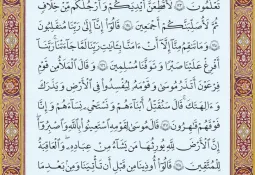 تَعْلَمُونَ ۝ لَأُقَطِّعَنَّ أَيْدِيَكُمْ وَأَرْجُلَكُم مِّنْ خِلَٰفٍ
ثُمَّ لَأُصَلِّبَنَّكُمْ أَجْمَعِينَ ۝ قَالُوٓا۟ إِنَّآ إِلَىٰ رَبِّنَا مُنقَلِبُونَ
۝ وَمَا تَنقِمُ مِنَّآ إِلَّآ أَنْ ءَامَنَّا بِـَٔايَٰتِ رَبِّنَا لَمَّا جَآءَتْنَا رَبَّنَآ
أَفْرِغْ عَلَيْنَا صَبْرًا وَتَوَفَّنَا مُسْلِمِينَ ۝ وَقَالَ ٱلْمَلَأُ مِن قَوْمِ
فِرْعَوْنَ أَتَذَرُ مُوسَىٰ وَقَوْمَهُۥ لِيُفْسِدُوا۟ فِى ٱلْأَرْضِ وَيَذَرَكَ
وَءَالِهَتَكَ قَالَ سَنُقَتِّلُ أَبْنَآءَهُمْ وَنَسْتَحْىِۦ نِسَآءَهُمْ وَإِنَّا
فَوْقَهُمْ قَٰهِرُونَ ۝ قَالَ مُوسَىٰ لِقَوْمِهِ ٱسْتَعِينُوا۟ بِٱللَّهِ وَٱصْبِرُوٓا۟
إِنَّ ٱلْأَرْضَ لِلَّهِ يُورِثُهَا مَن يَشَآءُ مِنْ عِبَادِهِۦ وَٱلْعَٰقِبَةُ
لِلْمُتَّقِينَ ۝ قَالُوٓا۟ أُوذِينَا مِن قَبْلِ أَن تَأْتِيَنَا وَمِنۢ بَعْدِ مَا